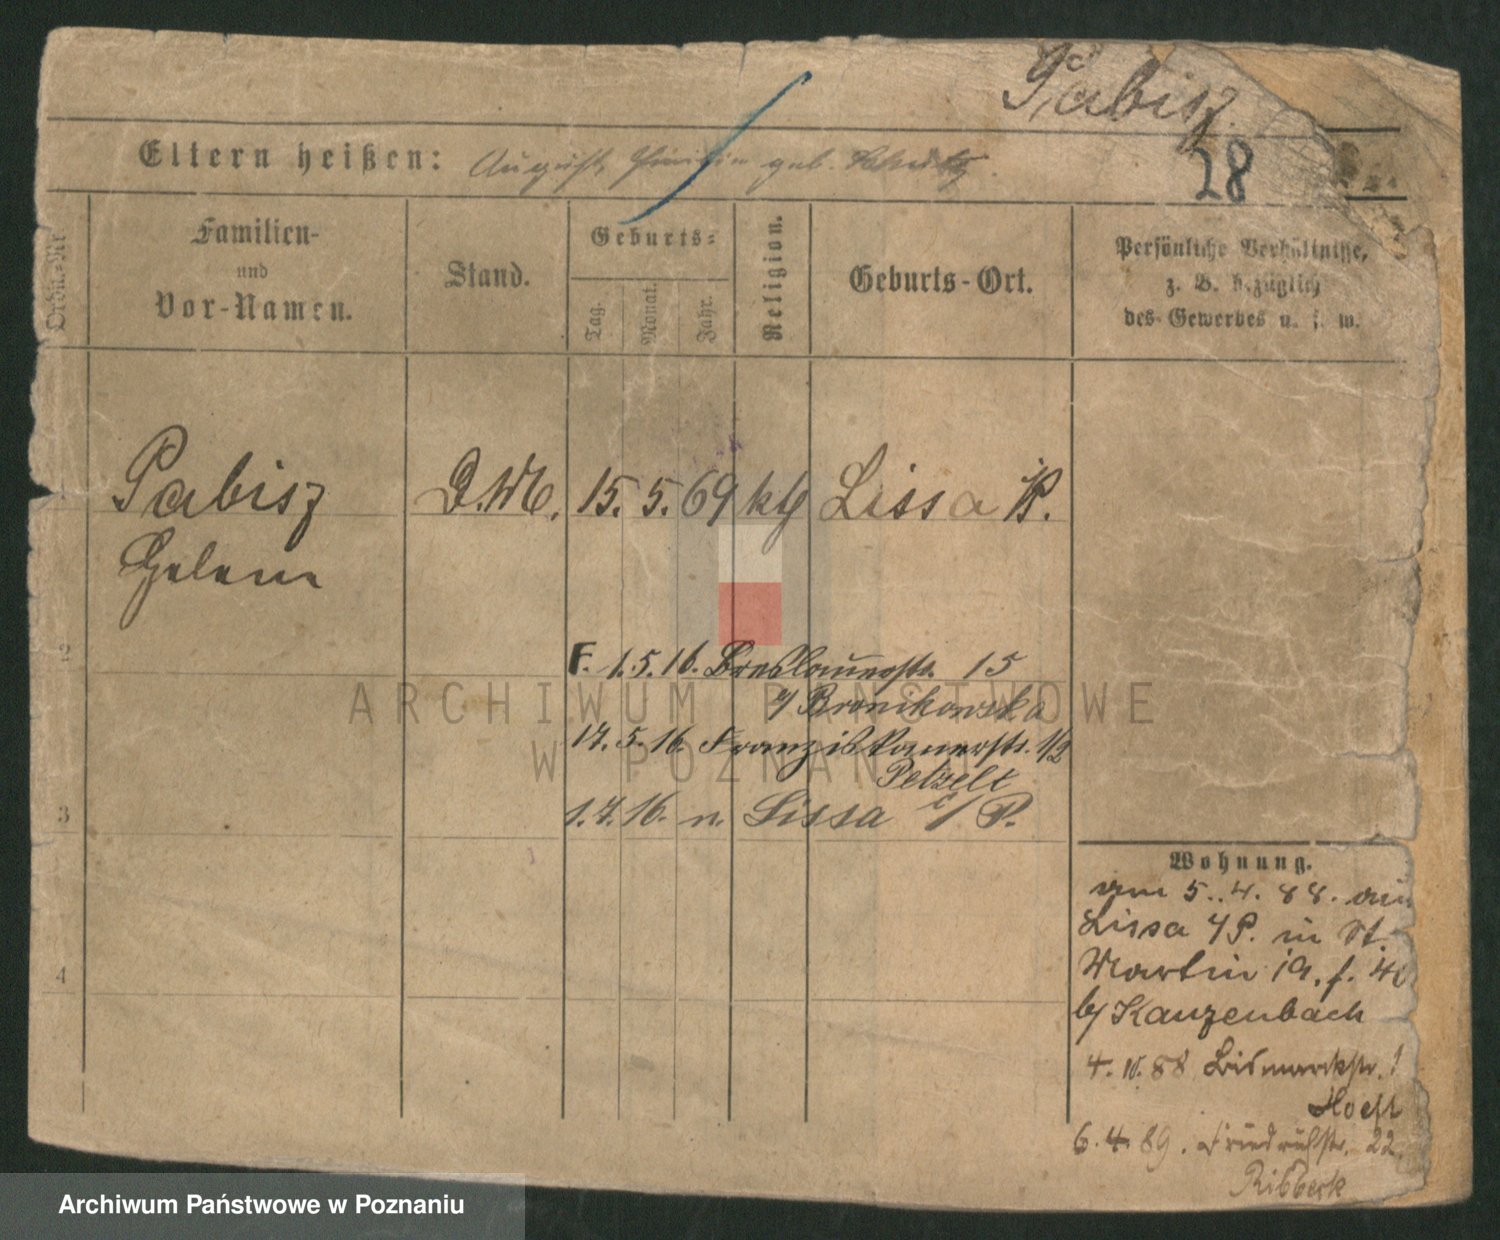 Pabisz.
28
Eltern heißen: August, geb.
Ordn.-Nr.
Familien-
und
Vor-Namen.
Stand.
Geburts-
Tag.
Monat.
Jahr.
Religion.
Geburts-Ort.
Persönliche Verhältnisse,
z. B. bezüglich
des Gewerbes u. s. w.
Pabisz D.M. 15. 5. 69 kth Lissa i/P.
Helene
2
F. 1.5.16. Breslauerstr. 15
b/ Bronikowska
17.5.16. Franziskanerstr. 1/2
Petzelt
1.7.16. n. Lissa i/P.
3
4
Wohnung.
am 5. 4. 88. aus
Lissa i/P. in St.
Martin
b/ Kanzenbach
4. 10. 88 Bismarckstr. 1
Hoeft
6. 4. 89. Friedrichstr. 22.
Ribbeck
ARCHIWUM PAŃSTWOWE
W POZNANIU
Archiwum Państwowe w Poznaniu